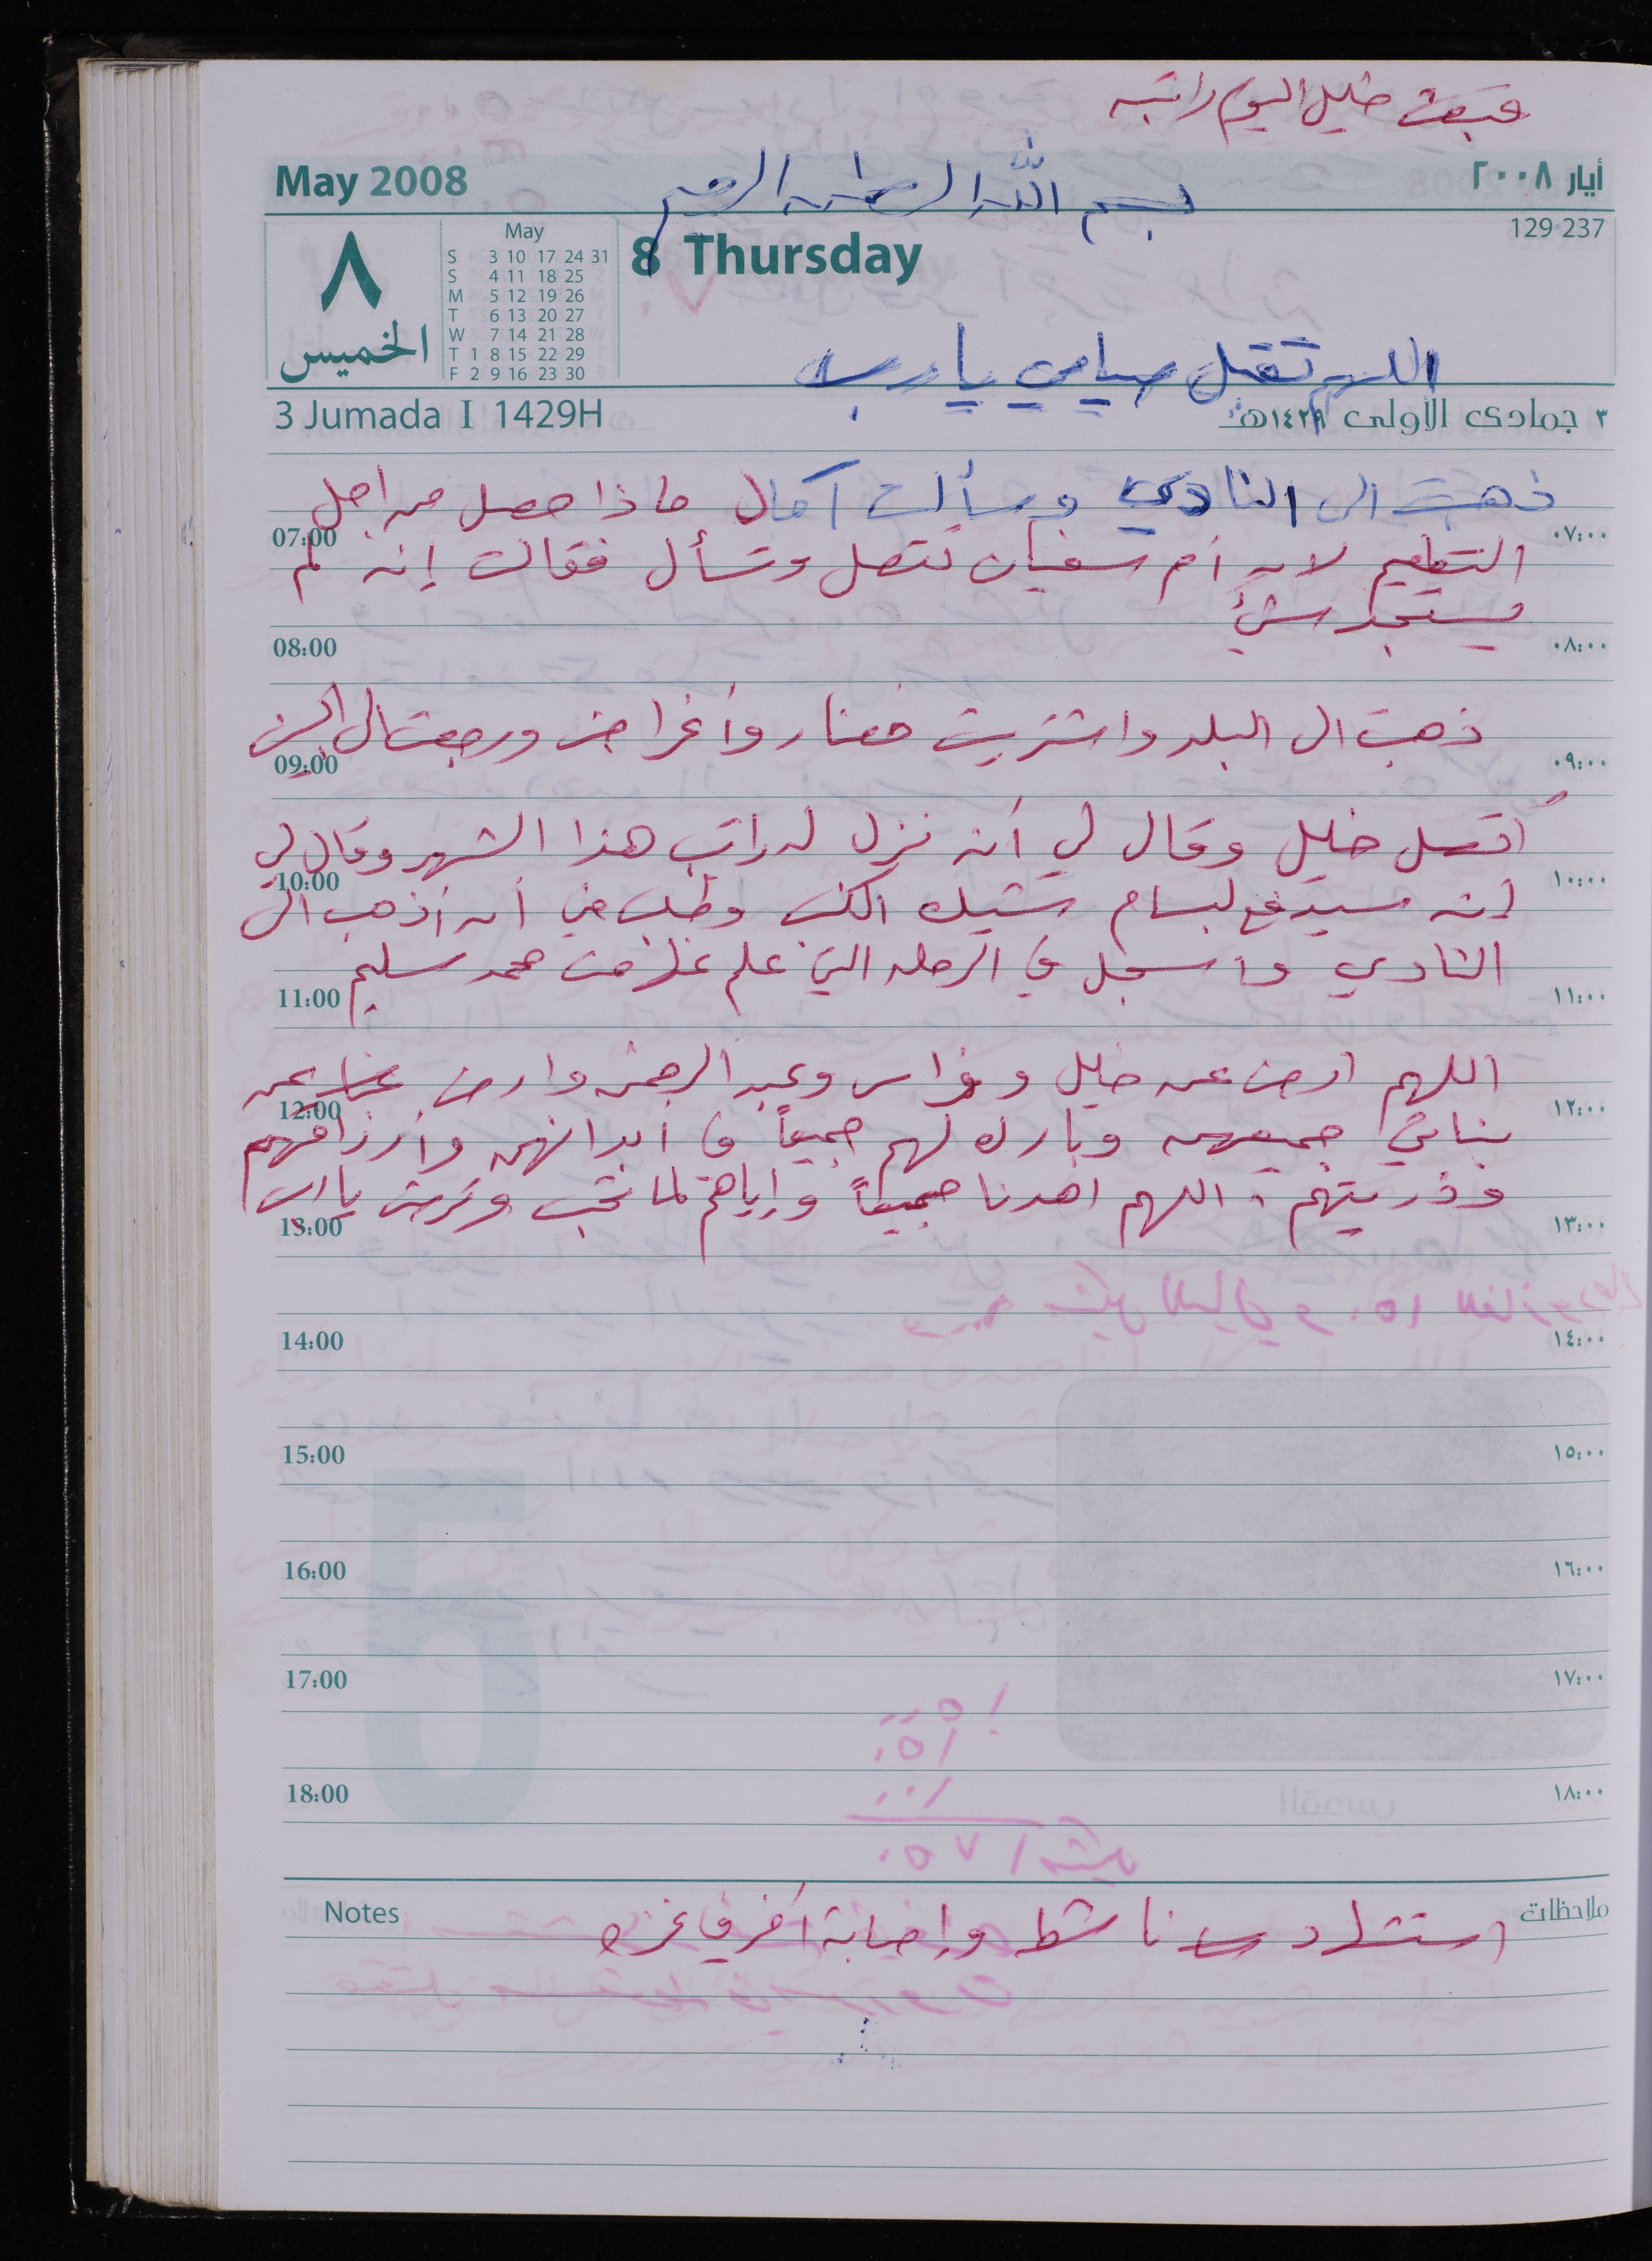 قبض خليل اليوم راتبه
May 2008
بسم الله الرحمن الرحيم
أيار ٢٠٠٨
129-237
٨
الخميس
May
S 3 10 17 24 31
S 4 11 18 25
M 5 12 19 26
T 6 13 20 27
W 7 14 21 28
T 1 8 15 22 29
F 2 9 16 23 30
8 Thursday
اللهم تقبل صيامي يا رب
3 Jumada I 1429H
٣ جمادى الأولى ١٤٢٩هـ
ذهبت الى النادي وسألت آمال ماذا حصل من اجل
07:00 ٠٧:٠٠
التطعيم لان أم سفيان تتصل وتسأل فقالت إنه لم
يستجد شيء
08:00 ٠٨:٠٠
ذهبت الى البلد واشتريت خضار وأغراض ورجعت الى البيت
09:00 ٠٩:٠٠
اتصل خليل وقال لي أنه نزل له راتب هذا الشهر وقال لي
10:00 ١٠:٠٠
إنه سيدفع لبسام شيك وطلب مني أن أذهب الى
النادي واسجل في الرحله التي محمد سليم
11:00 ١١:٠٠
اللهم ارض عن خليل وفراس وعبد الرحمن وارض عن
12:00 ١٢:٠٠
بناتي جميعهن وبارك لهم جميعاً في ابدانهم وأرزاقهم
وذريتهم، اللهم اهدنا جميعاً وإياهم لما تحب وترضى يا الله
13:00 ١٣:٠٠
14:00 ١٤:٠٠
15:00 ١٥:٠٠
16:00 ١٦:٠٠
17:00 ١٧:٠٠
18:00 ١٨:٠٠
Notes
ملاحظات
استشهاد ناشط وإصابة آخر في غزه